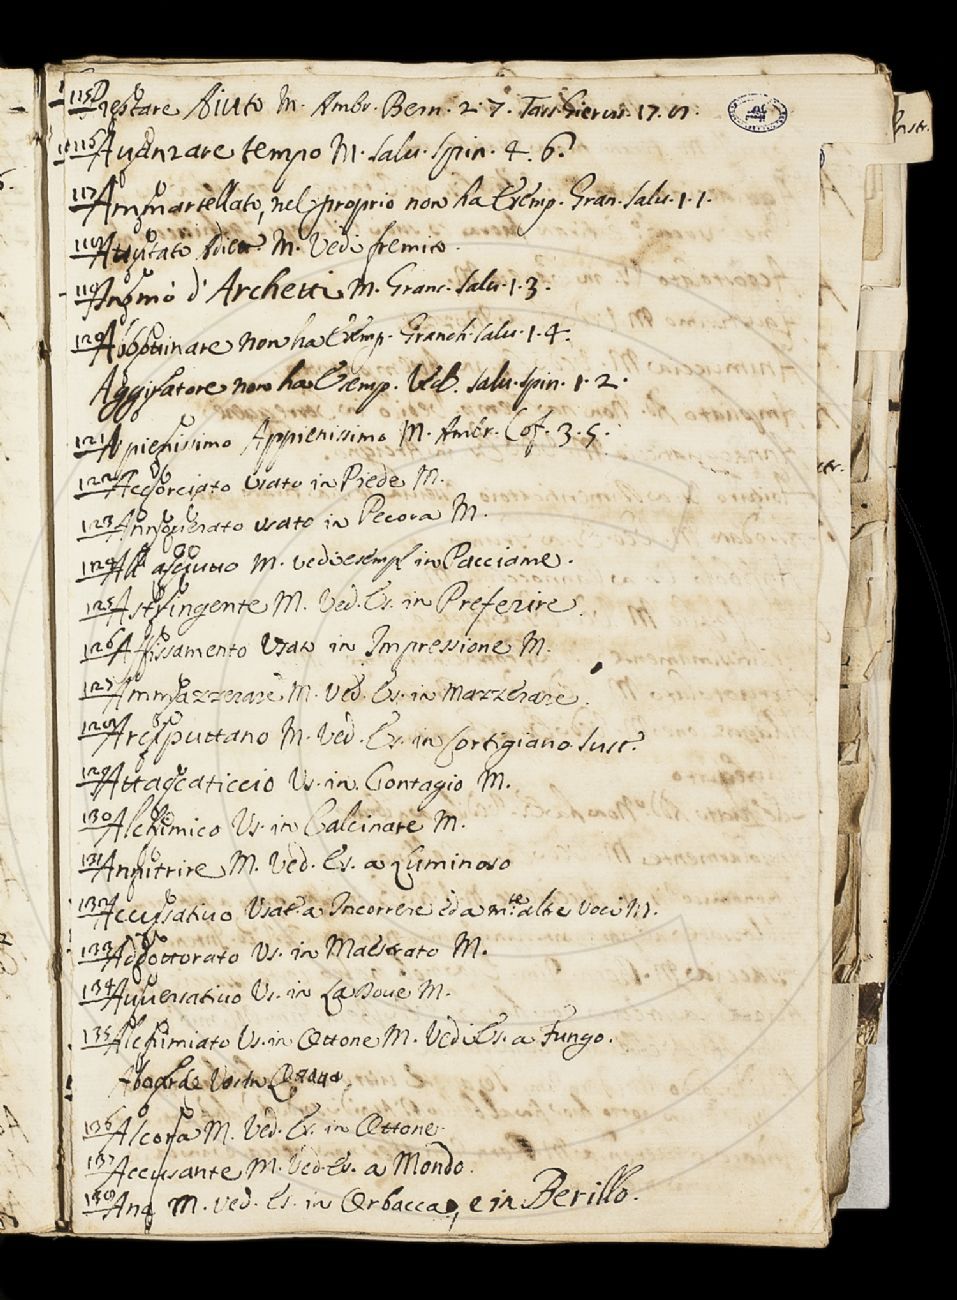 115 Prestare Aiuto M. Ambr. Bern. 2. 7. Tass. Gerus. 17.
116 Auanzare tempo M. Salu. Spin. 4. 6.
117 Ammartellato, nel proprio non ha Esemp. Gran. Salu. 1. 1.
M. Vedi fremito.
119 d'Archetti M. Granc. Salu. 1. 3.
120 Abbottinare non ha Esemp. Granch. Salu. 1. 4.
Aggiratore non ha Esemp. Ved. Salu. Spin. 1. 2.
121 Apienissimo Appienissimo M. Ambr. Cof. 3. 5.
122 Accorciato usato in Piede M.
123 Annouerato usato in Pecora M.
124 All'asciutto M. vedi esempl. in Pacciame.
125 Astringente M. Ved. Es. in Preferire.
126 Affissamento Usato in Impressione M.
127 Ammazzerare M. Ved. Es. in Mazzerare.
128 Arciputtano M. Ved. Es. in Cortigiano Sust.
129 Attaccaticcio Us. in Contagio M.
130 Alchimico Us. in Calcinare M.
131 Annitrire M. Ved. Es. a Luminoso
132 Accusatiuo Usat. a Incorrere ed a m.te alte voci M.
133 Addottorato Us. in Maestrato M.
134 Auuersatiuo Us. in La Doue M.
135 Alchimiato Us. in Ottone M. Vedi Es. a Fungo.
136 Alcora M. Ved. Es. in Ottone
137 Accusante M. Ved. Es. a Mondo.
138 M. ved. Es. in Orbacca, e in Berillo.